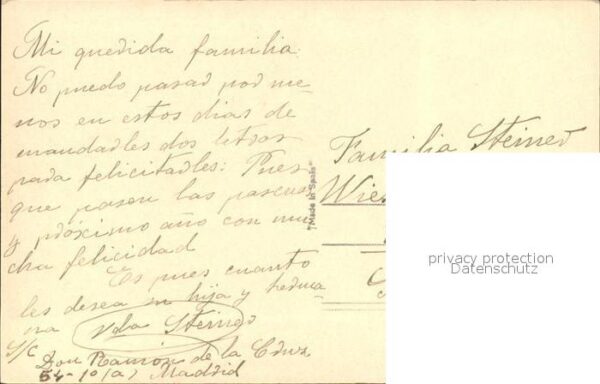 Mi querida familia:
No puedo pasar por me-
nos en estos dias de
mandarles dos letras
para felicitarles: Pues
que pasen las pascuas
y próximo año con mu-
cha felicidad
Es pues cuanto
les desea su hija y herma-
na Vda Steiner
S/C Don Ramón de la Cruz
54-1º(a) Madrid
"Made in Spain"
Familia Steiner
Wies
privacy protection
Datenschutz